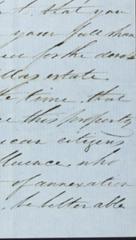 that you
your full shar
for the dona
Clay estate
the time that
this property
citizens
fluence, who
of annexation
be better able